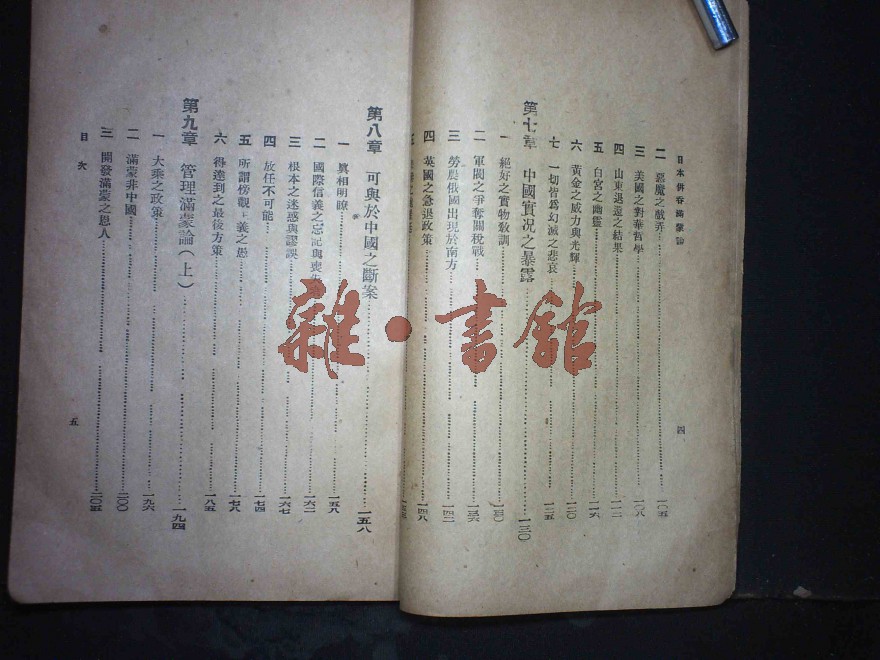 日本併吞滿蒙論
二 惡魔之戲弄 一〇五
三 美國之對華哲學 一〇八
四 山東退還之結果 一一二
五 白宮之幽靈 一一六
六 黃金之威力與光輝 一二〇
七 一切皆爲幻滅之悲哀 一二五
第七章 中國實況之暴露 一三〇
一 絕好之實物敎訓 一三〇
二 軍閥之爭奪關稅戰 一三六
三 勞農俄國出現於南方 一四二
四 英國之急退政策 一四八
五
四
第八章 可與於中國之斷案 一五八
一 眞相明瞭 一五八
二 國際信義之忘記與喪 一六二
三 根本之迷惑與謬誤 一六七
四 放任不可能 一七四
五 所謂傍觀主義之愚 一七八
六 得達到之最後方策 一八五
第九章 管理滿蒙論(上) 一九四
一 大乘之政策 一九六
二 滿蒙非中國 二〇〇
三 開發滿蒙之恩人 二〇五
目次
五
雜·書館